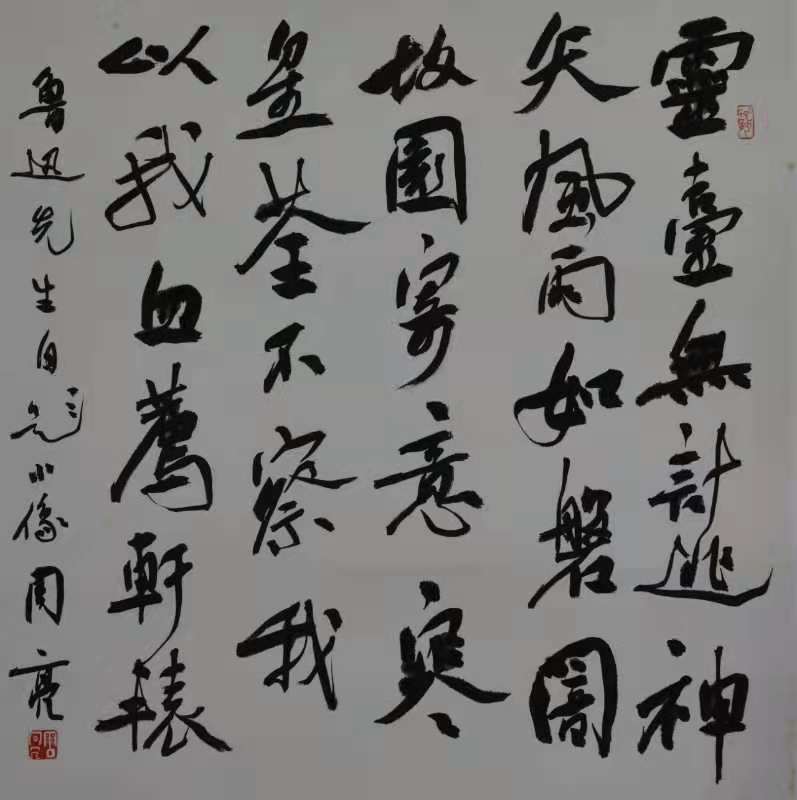 靈臺無計逃神
矢風雨如磐闇
故園寄意寒
星荃不察我
以我血薦軒轅
魯迅先生自題小像周亮